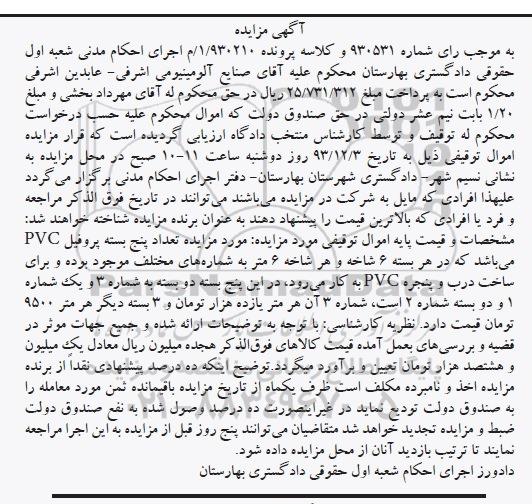 آگهی مزایده
به موجب رای شماره ۹۳۰۵۳۱ و کلاسه پرونده ۱/۹۳۰۲۱۰/م اجرای احکام مدنی شعبه اول
حقوقی دادگستری بهارستان محکوم علیه آقای صنایع آلومینیومی اشرفی- عابدین اشرفی
محکوم است به پرداخت مبلغ ۲۵/۷۳۱/۳۱۲ ریال در حق محکوم له آقای مهرداد بخشی و مبلغ
۱/۲۰ بابت نیم عشر دولتی در حق صندوق دولت که اموال محکوم علیه حسب درخواست
محکوم له توقیف و توسط کارشناس منتخب دادگاه ارزیابی گردیده است که قرار مزایده
اموال توقیفی ذیل به تاریخ ۹۳/۱۲/۳ روز دوشنبه ساعت ۱۱-۱۰ صبح در محل مزایده به
نشانی نسیم شهر- دادگستری شهرستان بهارستان- دفتر اجرای احکام مدنی برگزار می‌گردد
علیهذا افرادی که مایل به شرکت در مزایده می‌باشند می‌توانند در تاریخ فوق الذکر مراجعه
و فرد یا افرادی که بالاترین قیمت را پیشنهاد دهند به عنوان برنده مزایده شناخته خواهند شد:
مشخصات و قیمت پایه اموال توقیفی مورد مزایده: مورد مزایده تعداد پنج بسته پروفیل PVC
می‌باشد که در هر بسته ۶ شاخه و هر شاخه ۶ متر به شماره‌های مختلف موجود بوده و برای
ساخت درب و پنجره PVC به کار می‌رود، در این پنج بسته دو بسته به شماره ۳ و یک شماره
۱ و دو بسته شماره ۲ است، شماره ۳ آن هر متر یازده هزار تومان و ۳ بسته دیگر هر متر ۹۵۰۰
تومان قیمت دارد. نظریه کارشناسی: با توجه به توضیحات ارائه شده و جمیع جهات موثر در
قضیه و بررسی‌های بعمل آمده قیمت کالاهای فوق‌الذکر هجده میلیون ریال معادل یک میلیون
و هشتصد هزار تومان تعیین و برآورد میگردد. توضیح اینکه ده درصد پیشنهادی نقداً از برنده
مزایده اخذ و نامبرده مکلف است ظرف یکماه از تاریخ مزایده باقیمانده ثمن مورد معامله را
به صندوق دولت تودیع نماید در غیراینصورت ده درصد وصول شده به نفع صندوق دولت
ضبط و مزایده تجدید خواهد شد متقاضیان می‌توانند پنج روز قبل از مزایده به این اجرا مراجعه
نمایند تا ترتیب بازدید آنان از محل مزایده داده شود.
دادورز اجرای احکام شعبه اول حقوقی دادگستری بهارستان